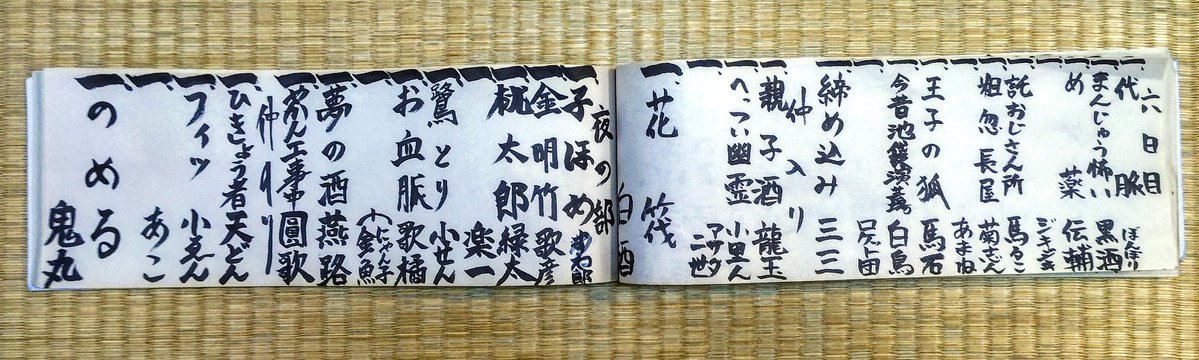 六日目
一、代脈 ぽんぽり
一、まんじゅう怖い 黒酒
一、め 薬 伝輔
一、 ジキジキ
一、託おじさん所 馬るこ
一、粗忽長屋 菊志ん
一、 あまね
一、王子の狐 馬石
一、今昔池袋演義 白鳥
一、 ニュート団
一、締め込み 三三
仲入り
一、親子酒 龍玉
一、へっつい幽霊 小里ん
一、 アサダ二世
一、花筏 白酒
夜の部
一、子ほめ
一、金明竹 歌彦
一、桃太郎 緑太
一、 楽一
一、鷺とり 小せん
一、お血脈 歌橘
一、 にゃん子金魚
一、夢の酒 燕路
一、みん工事中 圓歌
仲入り
一、ひきょう者 天どん
一、フィッ 小ゑん
一、 あこ
一、のめる 鬼丸